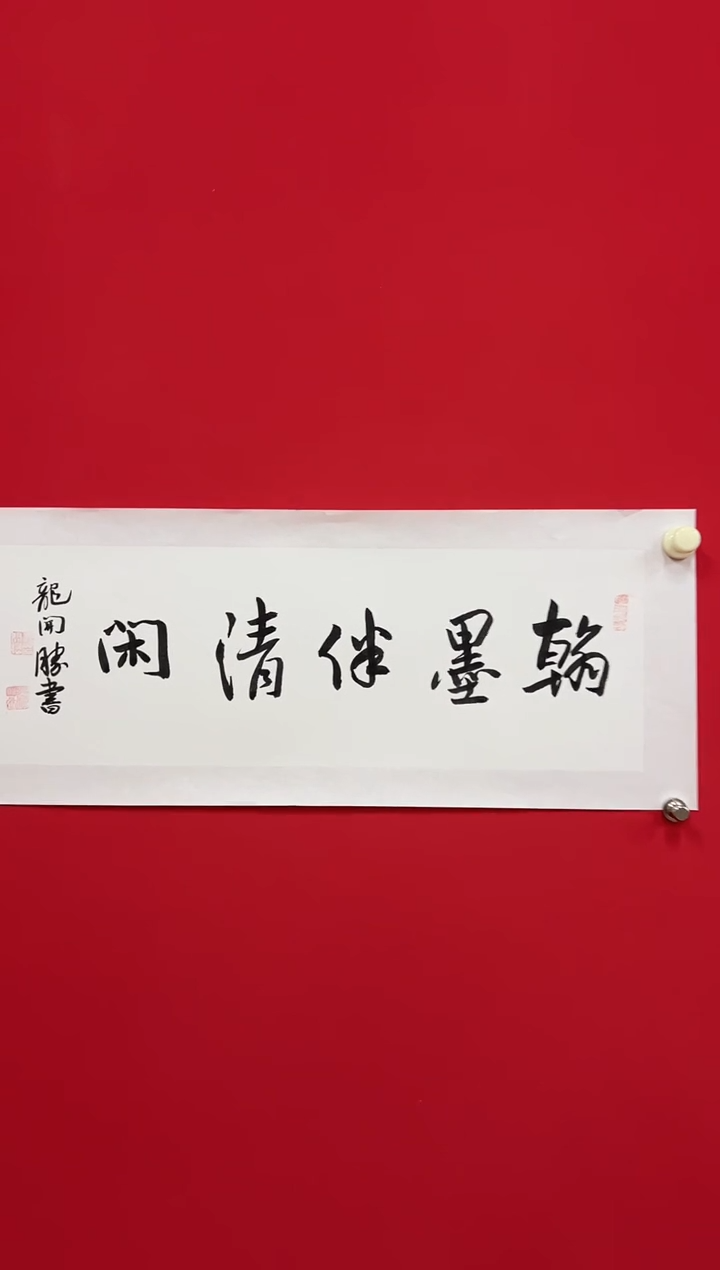 翰墨伴清閑
龍開勝書